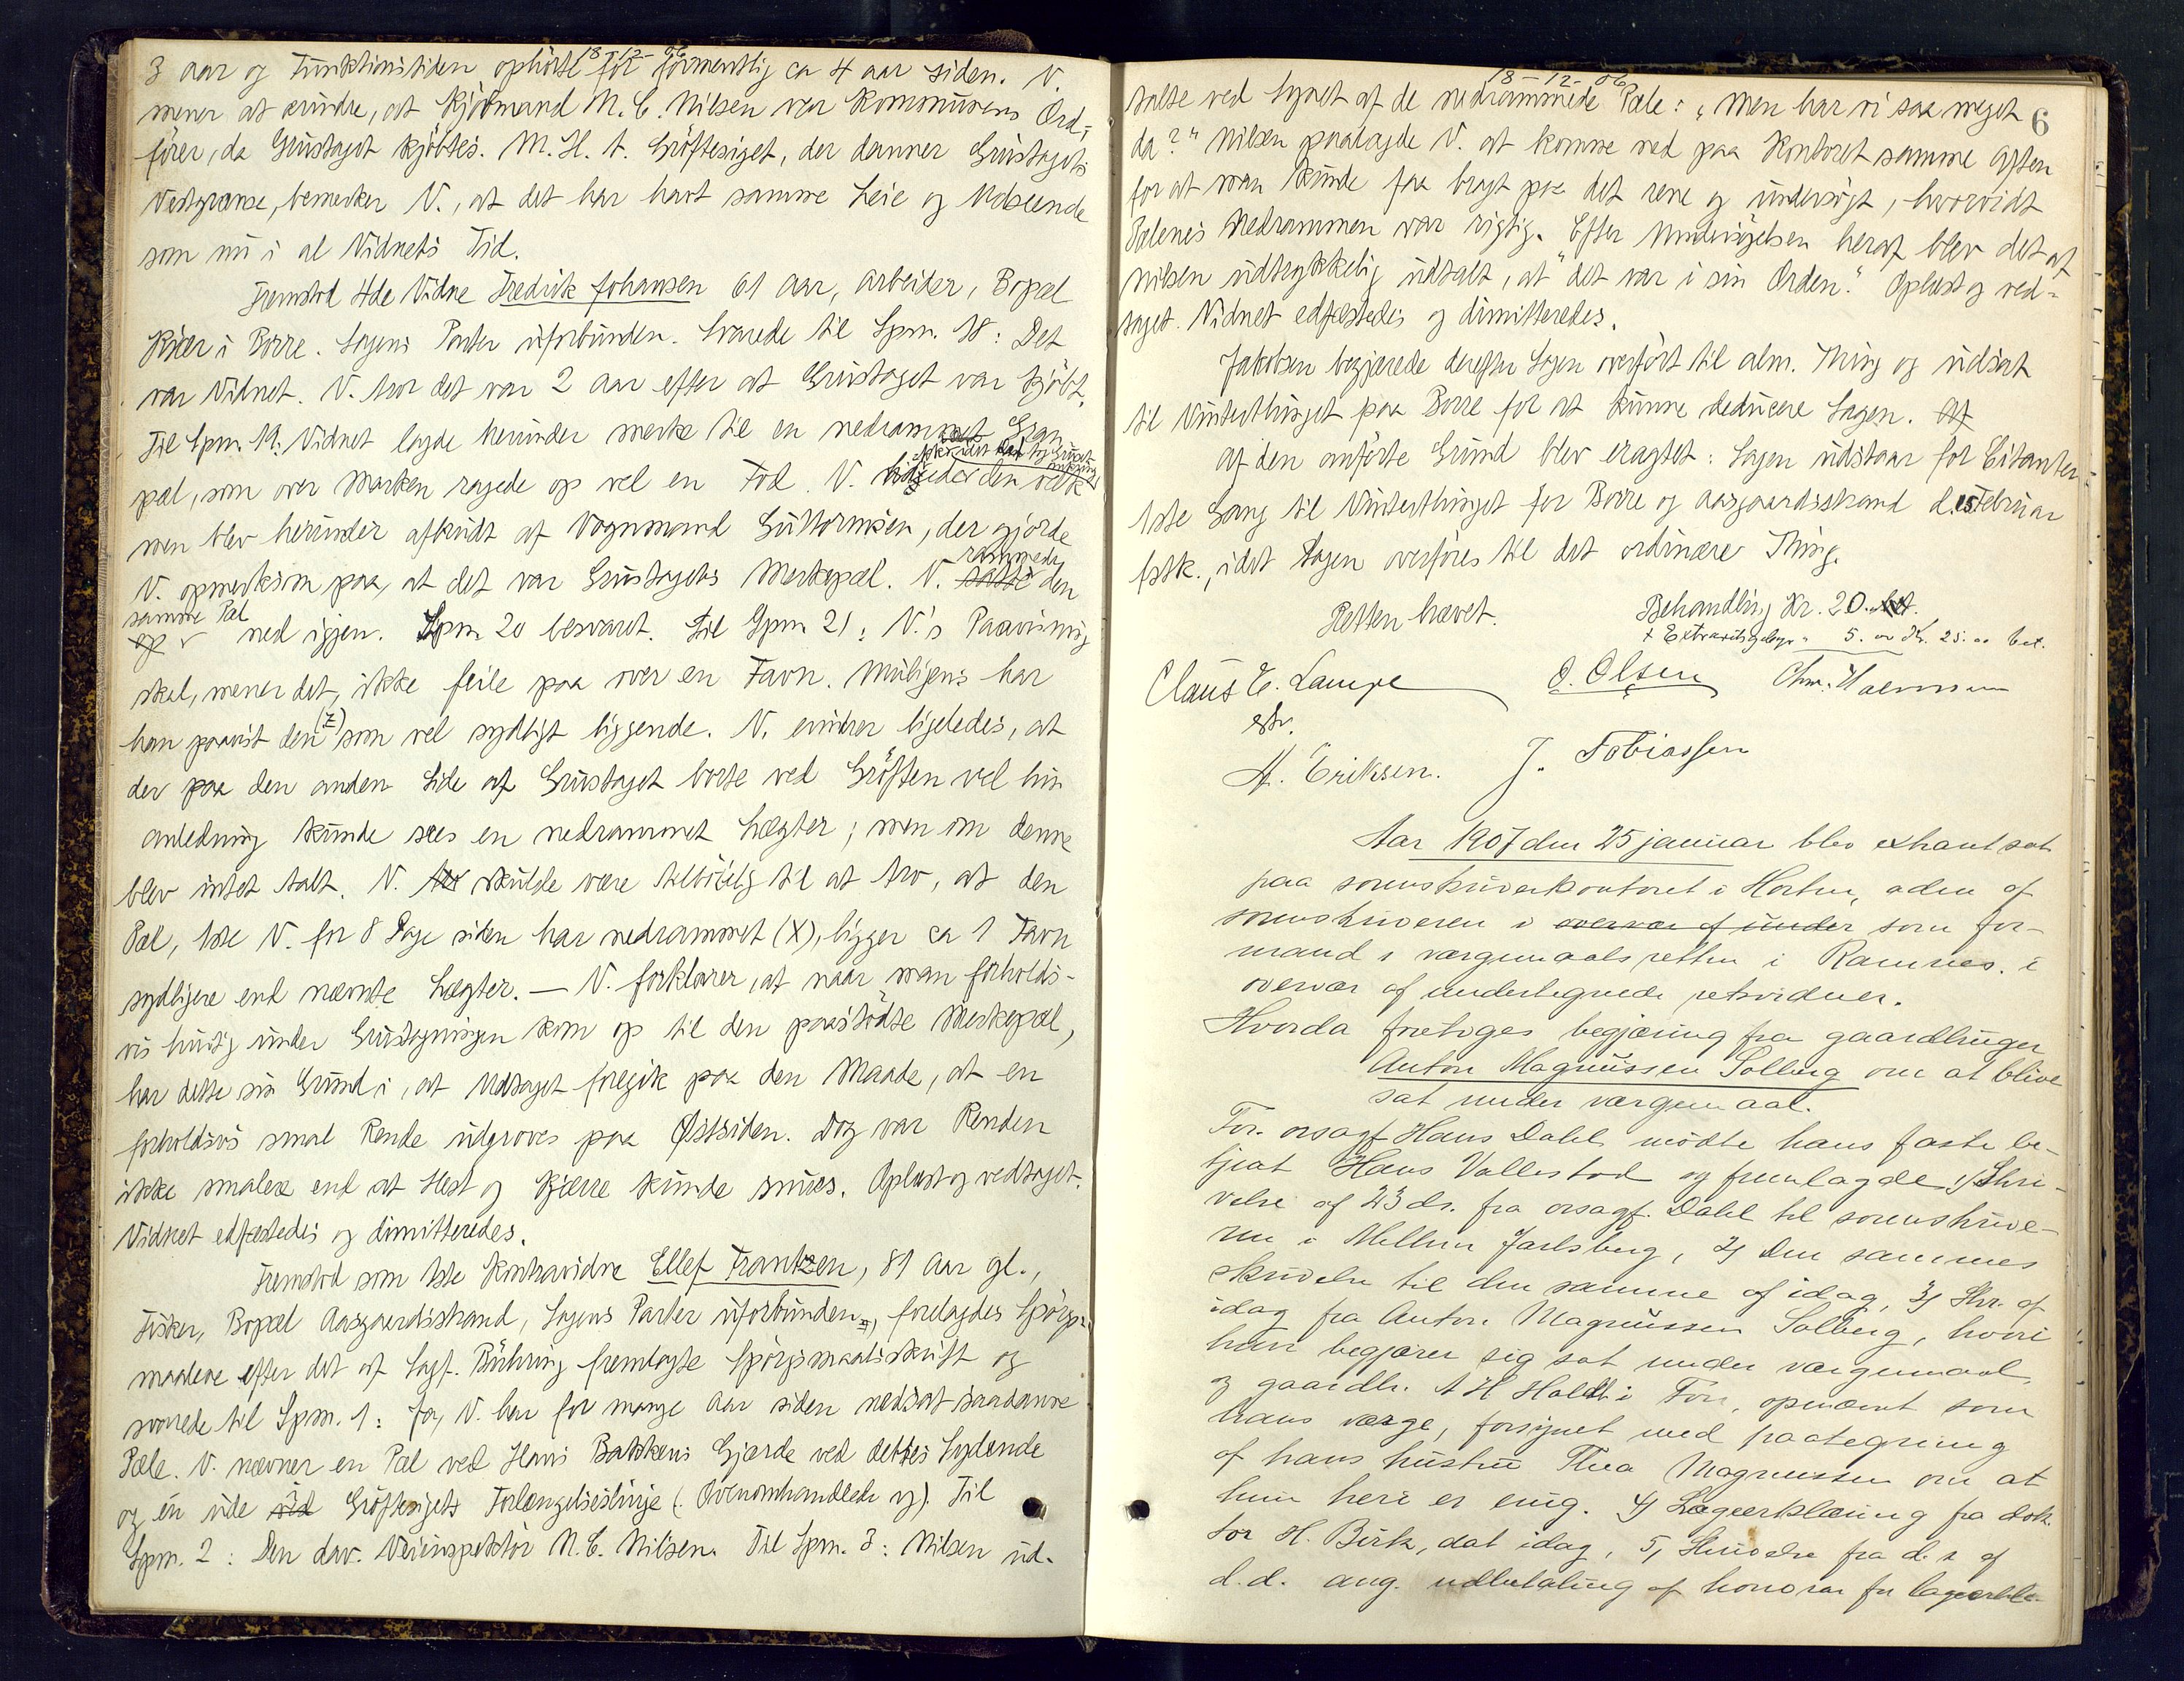 18-12-06
3 aar og Funktionstiden ophörte for formentlig ca 4 aar siden. V.
mener at erindre, at Kjöbmand M. C. Nilsen var Kommunens Ord-
förer, da Grustaget kjöbtes. M. H. t. Gröftesiget, der danner Grustagets
Vestgrænse, bemerker V., at det har havt samme Leie og Udseende
som nu i al Vidnets Tid.
Fremstod 4de Vidne Fredrik Johansen 61 Aar, Arbeider, Bopæl
Kjær i Borre. Sagens Parter uforbunden. Svarede til Spm. 18: Det
var Vidnet. V. tror det var 2 Aar efter at Grustaget var kjöbt.
Til Spm. 19: Vidnet lagde herunder merke til en nedrammet Gran
pæl, som over Marken ragede op vel en Fod. V. den væk
men blev herunder afbrudt af Vognmand Guttormsen, der gjorde
V. opmerksom paa, at det var Grustagets Merkepæl. V. satte rammede den
samme Pæl
op ned igjen. Spm. 20 besvaret. Til Spm. 21: V.'s Paavisning
skal, mener det, ikke feile paa over en Favn. Muligens har
han paavist den (Z) som vel sydligt liggende. V. erindrer ligeledes, at
der paa den anden Side af Grustaget borte ved Gröften ved hin
anledning kunde sees en nedrammet Lægter; men om denne
blev intet talt. V. skulde være tilböielig til at tro, at den
Pæl, 1ste V. for 8 Dage siden har nedrammet (X), ligger ca 1 Favn
sydligere end nævnte Lægter. — V. forklarer, at naar man forholds-
vis hurtig under Grustagningen kom op til den paastödte Merkepæl,
har dette sin Grund i, at Udtaget foregik paa den Maade, at en
forholdsvis smal Rende udgroves paa Østsiden. Dog var Renden
ikke smalere end at Hest og Kjærre kunde snues. Oplæst og vedtaget.
Vidnet edfæstedes og dimitteredes.
Fremstod som 1ste Kontravidne Ellef Frantzen, 81 Aar gl.,
Fisker, Bopæl Aasgaardsstrand, Sagens Parter uforbunden, forelagdes Spörgs-
maalene efter det af Sagf. Bühring fremlagte Spörgsmaalsskrift og
svarede til Spm. 1: Ja, V. har for mange Aar siden nedsat saadanne
Pæle. V. nævner en Pæl ved Hans Bakkens Gjærde ved dettes Sydende
og en ude ved Gröftesigets Forlængelseslinje (: Ovenomhandlede y). Til
Spm. 2: Den dav. Veiinspektör M. C. Nilsen. Til Spm. 3: Nilsen ud-
18-12-06
6
talte ved Synet af de nedrammede Pæle: „Men har vi saa meget
da?" Nilsen paalagde V. at komme ned paa Kontoret samme Aften
for at man kunde faa bragt paa det rene og undersögt, hvorvidt
Pælenes Nedrammen var rigtig. Efter Undersögelsen heraf blev det af
Nilsen udtrykkelig udtalt, at "det var i sin Orden." Oplæst og ved-
taget. Vidnet edfæstedes og dimitteredes.
Jakobsen begjærede derefter Sagen overfört til alm. Thing og udsat
til Vinterthinget paa Borre for at kunne deducere Sagen. Af
Af den anförte Grund blev eragtet: Sagen udstaar for Citanten
1ste Gang til Vinterthinget for Borre og Aasgaardsstrand d. 15 Februar
fstk., idet Sagen overföres til det ordinære Thing.
Retten hævet.
Behandling Kr. 20.
+ Extraretsgebyr " 5. 00 Kr. 25. 00 bet.
Claus E. Lampe
O. Olsen
cstr.
A. Eriksen. J. Tobiassen
Aar 1907 den 25 januar blev extraret sat
paa sorenskriverkontoret i Horten, aden af
sorenskriveren i overvær af under som for-
mand i værgemaalsretten i Ramnes. i
overvær af undertegnede retsvidner.
Hvorda foretoges begjæring fra gaardbruger
Anton Magnussen Solberg om at blive
sat under værgemaal.
For orsagf. Hans Dahl mödte hans faste be-
tjent Hans Vallestad og fremlagde 1/ Skri-
velse af 23 ds. fra orsagf. Dahl til sorenskrive-
ren i Mellem Jarlsberg, 2/ Den sammes
skrivelse til den samme af idag, 3/ Skr. af
idag fra Anton Magnussen Solberg, hvori
han begjærer sig sat under værgemaal
og gaardbr. A H Holdt i Fon, opnævnt som
hans værge, forsynet med paategning
af hans hustru Thea Magnussen om at
hun heri er enig. 4/ Lægeerklæring fra dok-
tor H. Birk, dat idag, 5, Skrivelse fra d. s af
d.d. ang. udbetaling af honorar for lægeerklæ-